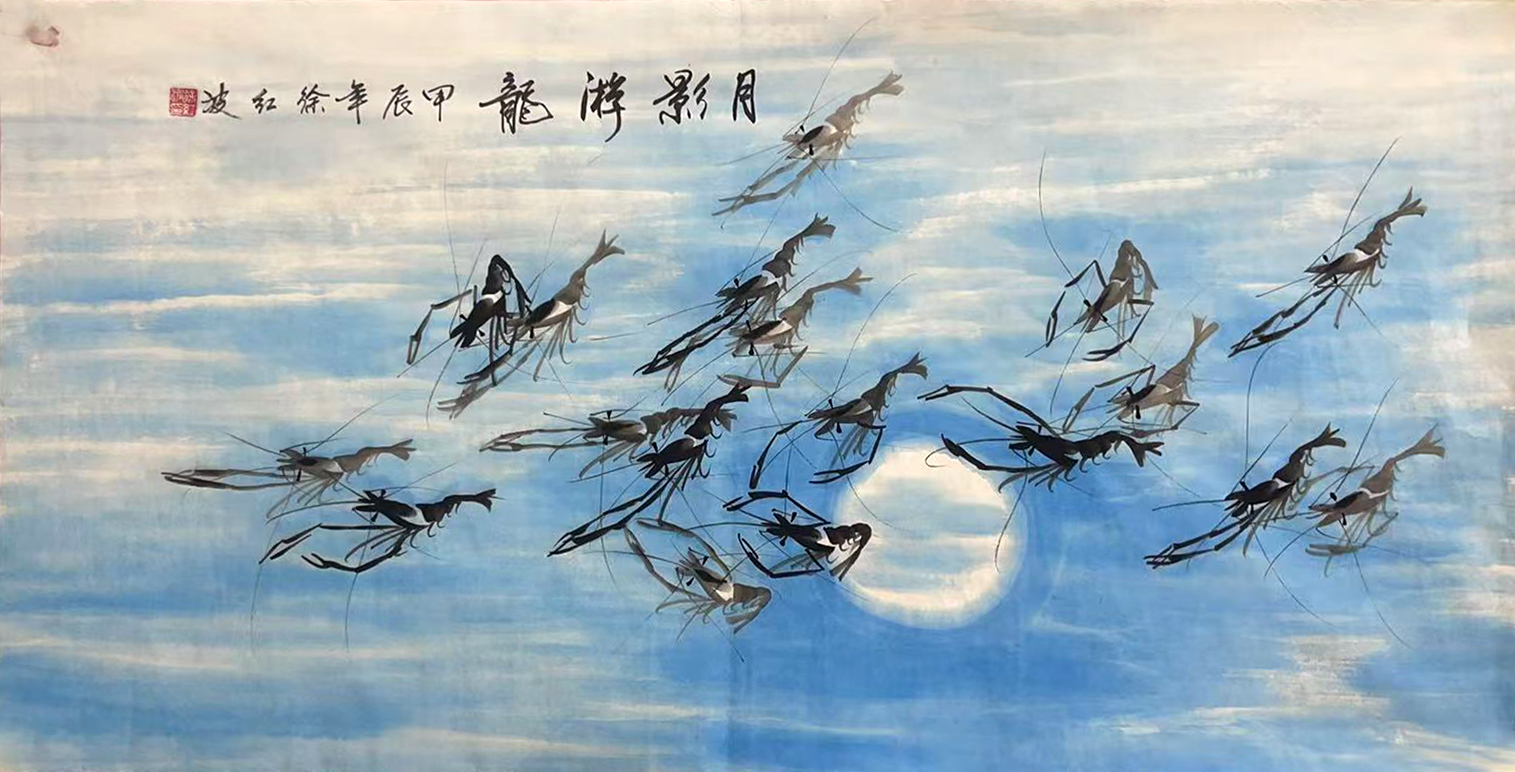 月影游龍 甲辰年 徐红波